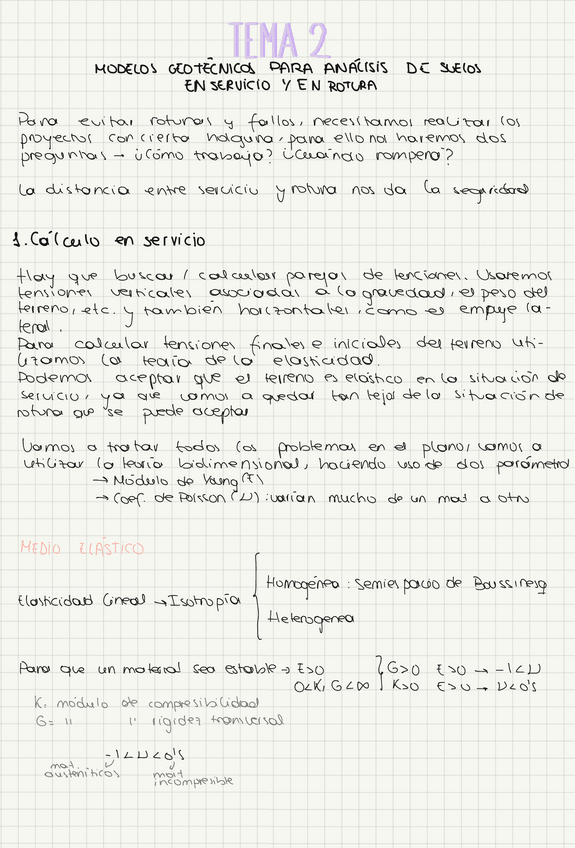 TEMA 2
MODELOS GEOTÉCNICOS PARA ANÁLISIS DE SUELOS
EN SERVICIO Y EN ROTURA
Para evitar roturas y fallos, necesitamos realizar los
proyectos con cierta holgura, para ello nos haremos dos
preguntas → ¿Cómo trabaja? ¿Cuándo romperá?
La distancia entre servicio y rotura nos da la seguridad
1. Cálculo en servicio
Hay que buscar / calcular parejas de tenciones. Usaremos
tensiones verticales asociadas a la gravedad, el peso del
terreno, etc. y también horizontales, como es empuje la-
teral.
Para calcular tensiones finales e iniciales del terreno uti-
lizamos la teoría de la elasticidad.
Podemos aceptar que el terreno es elástico en la situación de
servicio, ya que vamos a quedar tan lejos de la situación de
rotura que se puede aceptar
Vamos a tratar todos los problemas en el plano, vamos a
utilizar la teoría bidimensional, haciendo uso de dos parámetro
→ Módulo de Young (E)
→ Coef. de Poisson (ν): varían mucho de un mat a otro
MEDIO ELÁSTICO
Elasticidad lineal → Isotropía
Homogénea: Semiespacio de Boussinesq
Heterogenea
Para que un material sea estable → E>0 G>0 E>0 → -1<ν
0<K, G<∞ K>0 E>0 → ν<0's
K: módulo de compresibilidad
G= " " rigidez transversal
-1<ν<0's
mat. mat
austeníticos incompresible